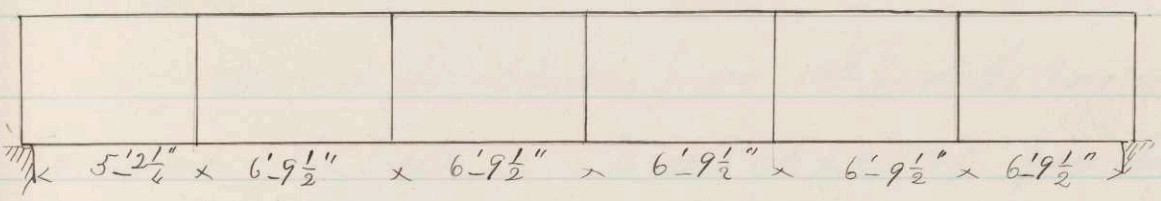 5'-2 1/4" × 6'-9 1/2" × 6'-9 1/2" × 6'-9 1/2" × 6'-9 1/2" × 6'-9 1/2"